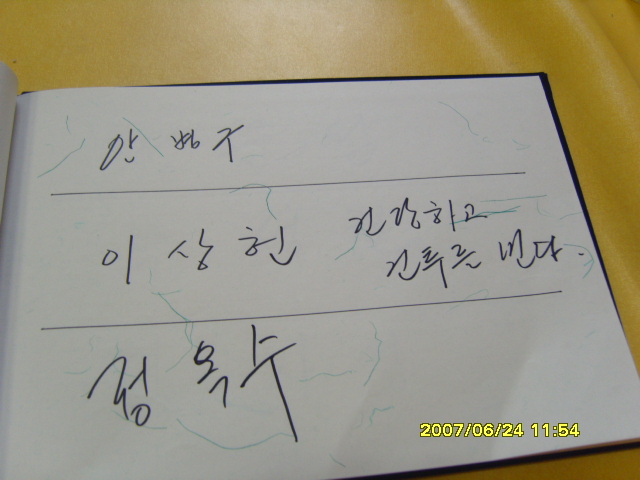 이상헌 건강하고
건투를 빈다.
정옥수
2007/06/24 11:54